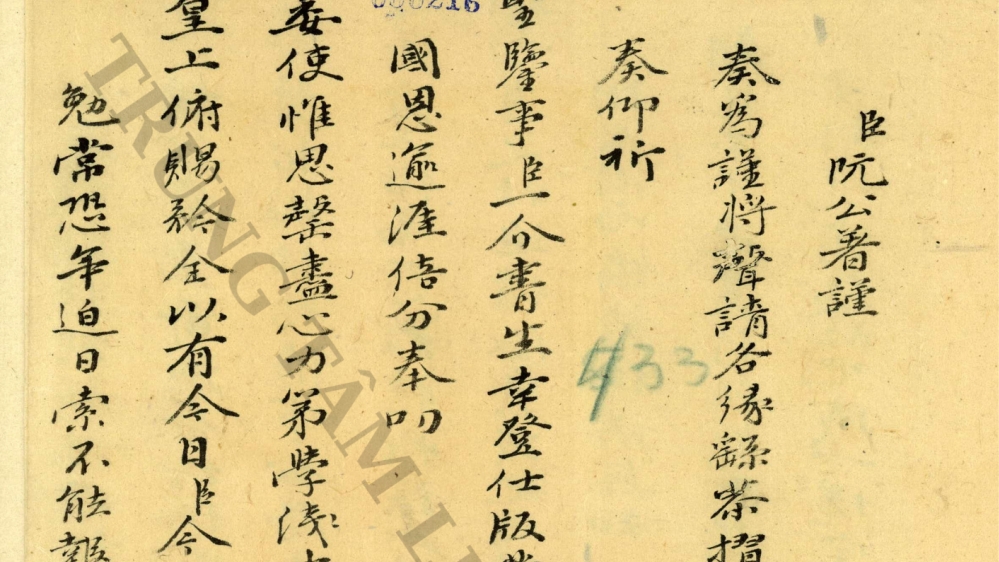 臣阮公著謹
奏爲謹將聲請各緣繇恭摺
奏仰祈
聖鑒事臣一介書生幸登仕版
國恩逾涯倍分奉叩
委使惟思罄盡心力第學淺
皇上俯賜矜全以有今日臣今
勉常恐年迫日索不能報
433
000216
TRUNG TÂM L